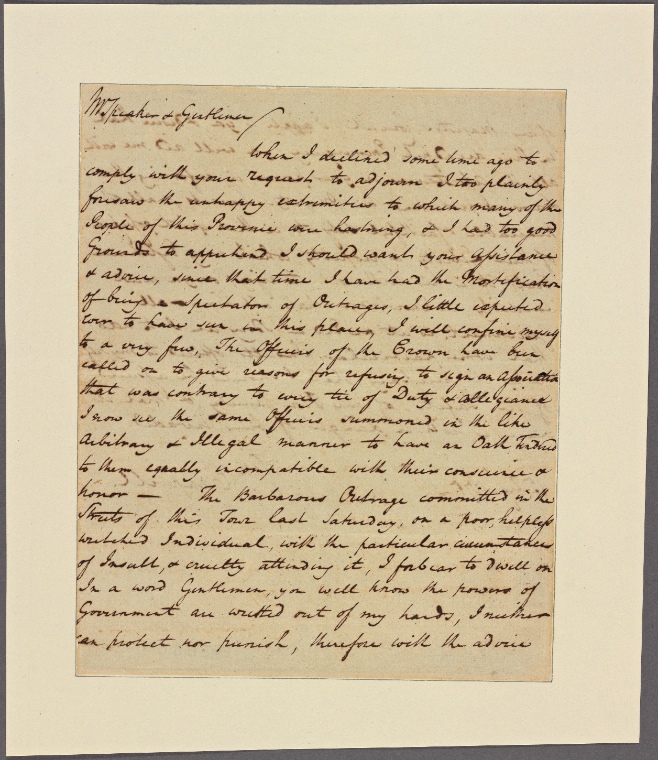 Mr Speaker & Gentlemen
When I declined some time ago to
comply with your request to adjourn I too plainly
foresaw the unhappy extremities to which many of the
People of this Province were hastning, & I had too good
Grounds to apprehend I should want your Assistance
& advice, since that time I have had the Mortification
of being a Spectator of Outrages, I little expected
ever to have seen in this place, I will confine myself
to a very few, The Officers of the Crown have been
called on to give reasons for refusing to sign an Association
that was contrary to every tie of Duty & allegiance
I now see the same Officers summoned in the like
Arbitrary & Illegal manner to have an Oath Tendred
to them equally incompatible with their conscience &
honor — The Barbarous Outrage committed in the
Streets of this Town last Saturday, on a poor helpless
wretched Individual, with the particular circumstances
of Insult, & cruelty attending it, I forbear to dwell on
In a word Gentlemen, you well know the powers of
Government are wrested out of my hands, I neither
can protect nor punish, therefore with the advice